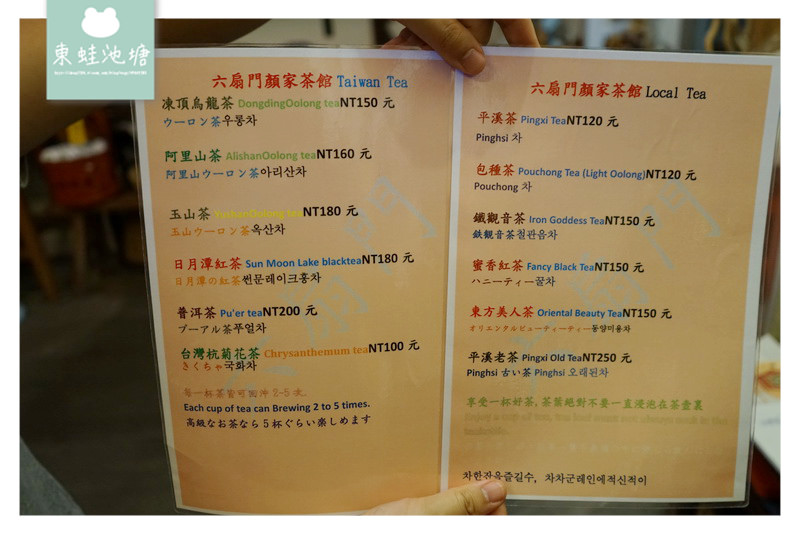 東蛙池塘
六扇門顏家茶館 Taiwan Tea
凍頂烏龍茶 DongdingOolong teaNT150 元
ウーロン茶우롱차
阿里山茶 AlishanOolong teaNT160 元
阿里山ウーロン茶아리산차
玉山茶 YushanOolong teaNT180 元
玉山ウーロン茶옥산차
日月潭紅茶 Sun Moon Lake blackteaNT180 元
日月潭の紅茶썬문레이크홍차
普洱茶 Pu'er teaNT200 元
プーアル茶푸얼차
台灣杭菊花茶 Chrysanthemum teaNT100 元
きくちゃ국화차
每一杯茶皆可回沖 2-5 次.
Each cup of tea can Brewing 2 to 5 times.
高級なお茶なら5杯ぐらい楽しめます
六扇門顏家茶館 Local Tea
平溪茶 Pingxi TeaNT120 元
Pinghsi 차
包種茶 Pouchong Tea (Light Oolong)NT120 元
Pouchong 차
鐵觀音茶 Iron Goddess TeaNT150 元
鉄観音茶철관음차
蜜香紅茶 Fancy Black TeaNT150 元
ハニーティー꿀차
東方美人茶 Oriental Beauty TeaNT150 元
オリエンタルビューティーティー동양미용차
平溪老茶 Pingxi Old TeaNT250 元
Pinghsi 古い茶 Pinghsi 오래된차
享受一杯好茶, 茶葉絕對不要一直浸泡在茶壺裏
차한잔을즐길수, 차차군레인에적신적이